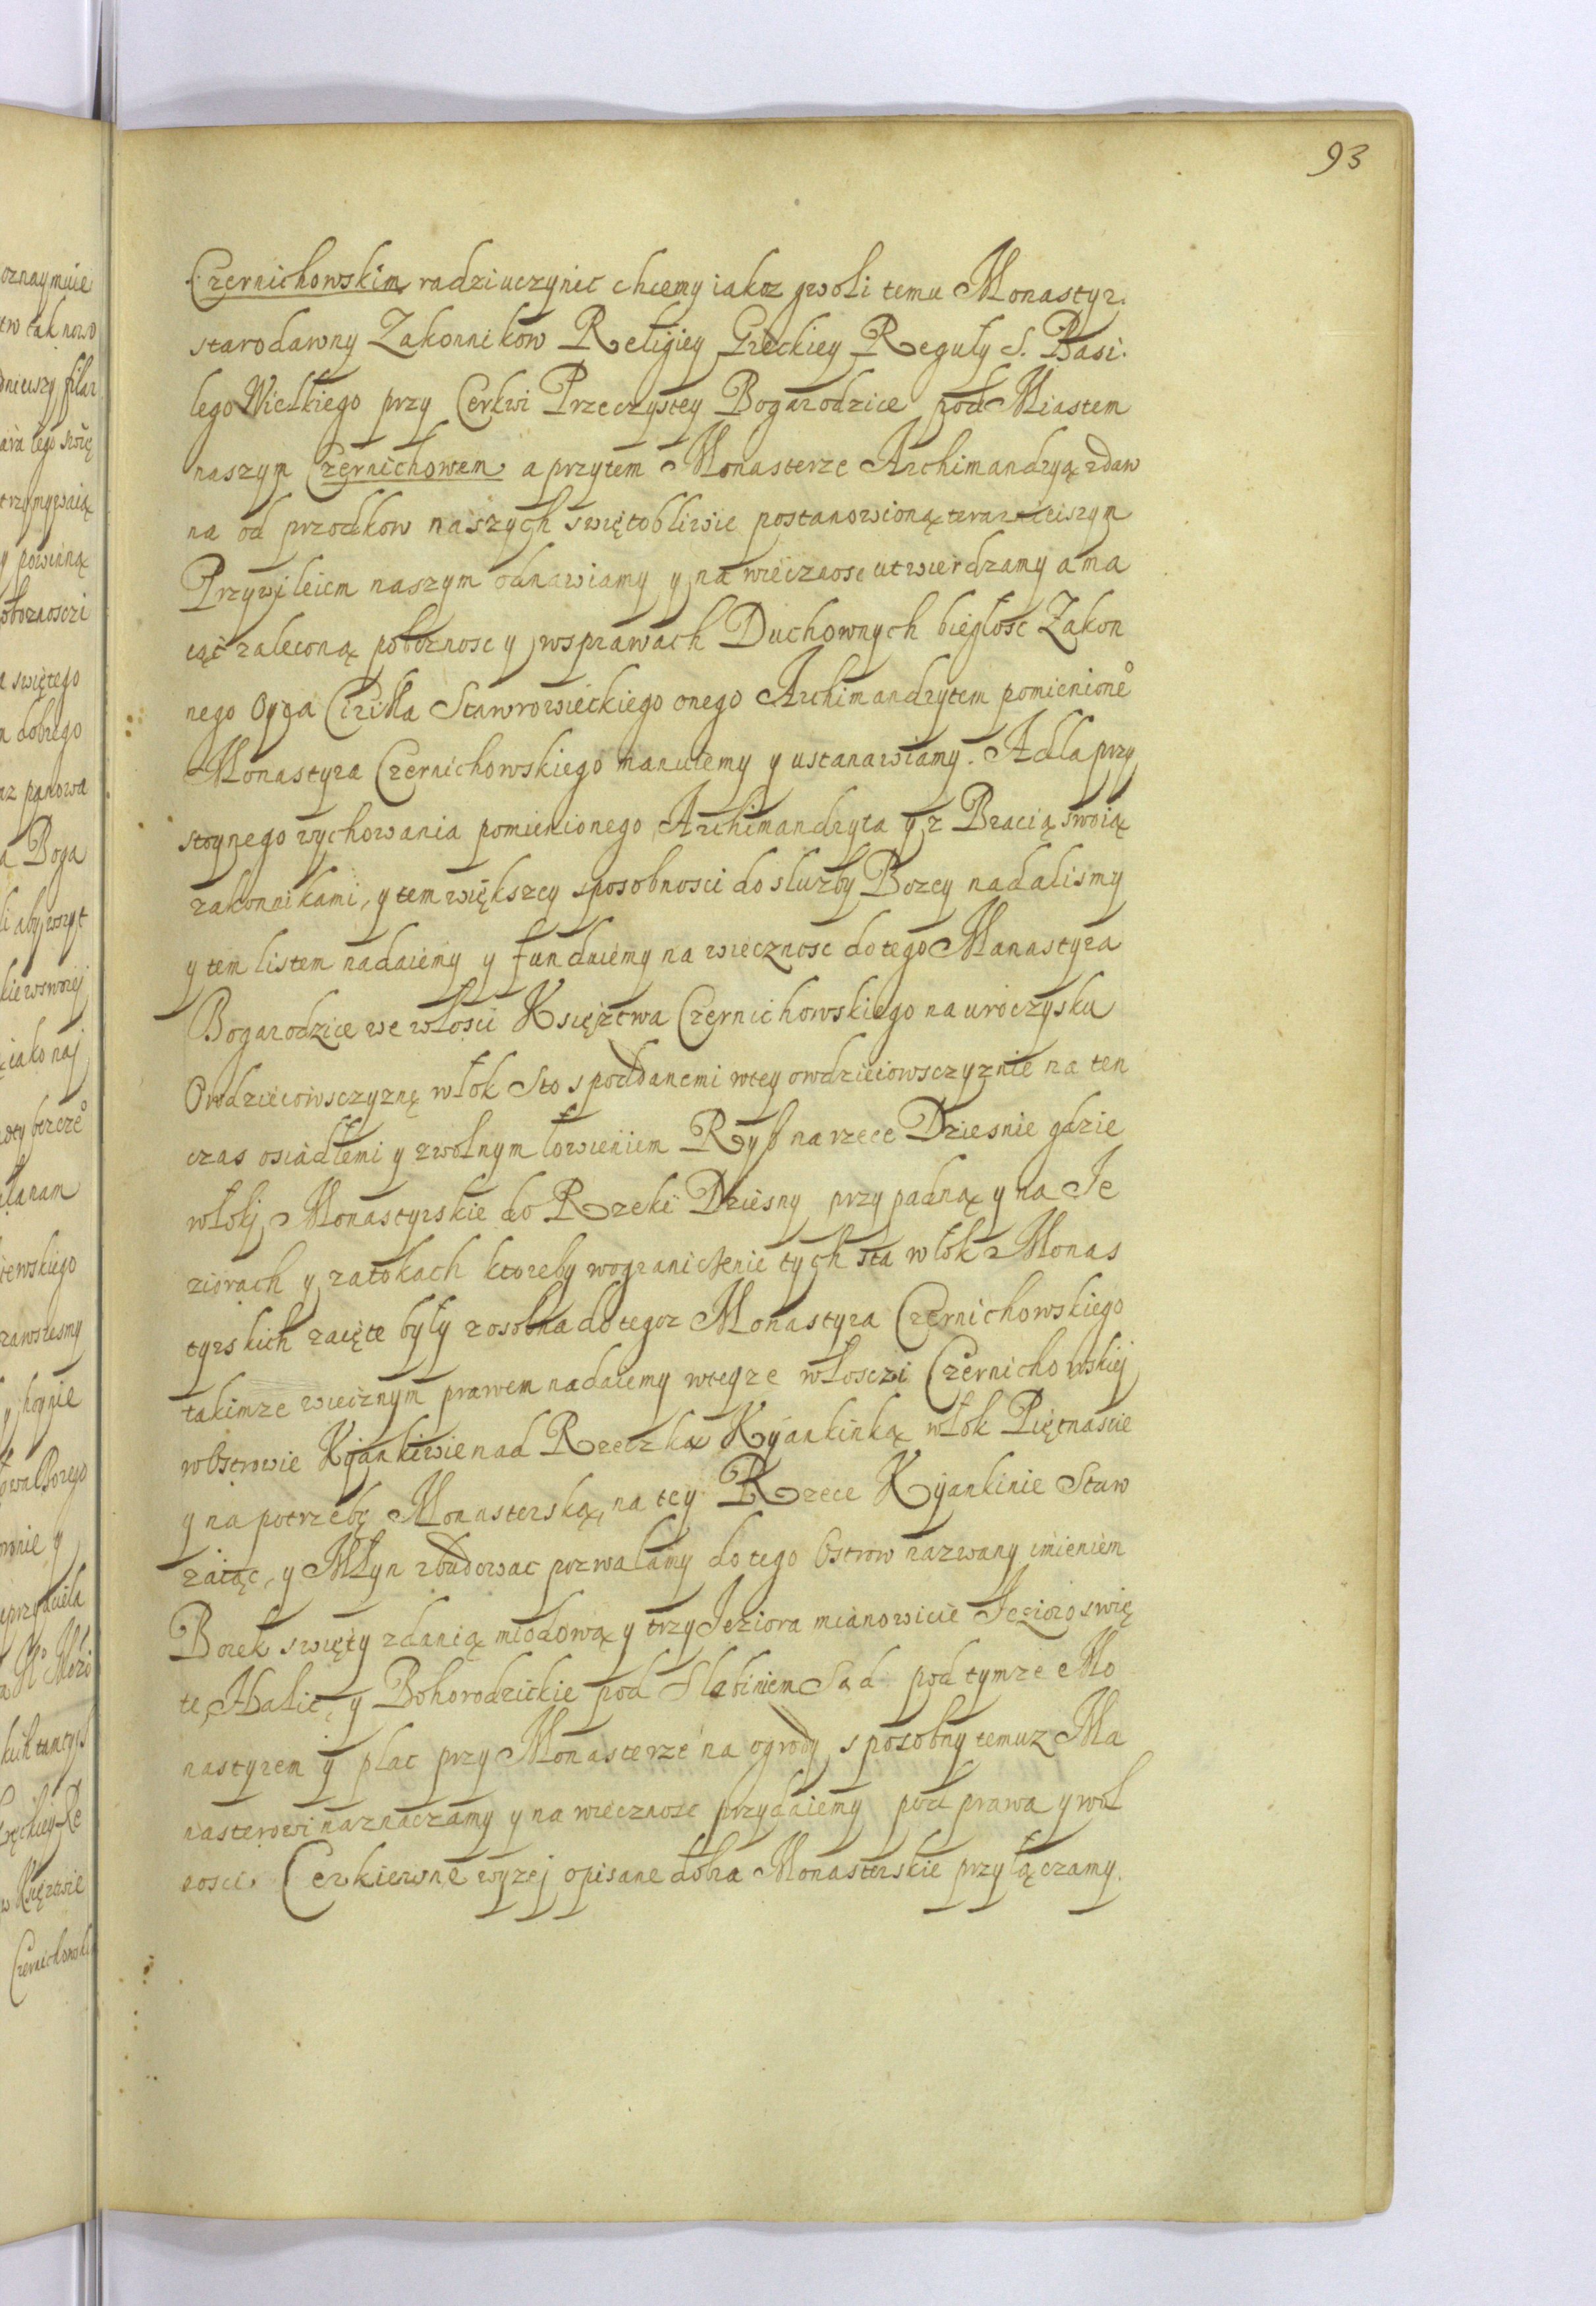 93
Czernichowskim radzi uczynic chcemy iakoz gwoli temu Monastyr.
starodawny Zakonnikow Religiey Greckiey Reguły S. Basi.
lego Wielkiego przy Cerkwi Przeczystey Bogarodzice pod Miastem
naszym Czernichowem a przytem Monasterze Archimandryą zdaw
na od przodkow naszych swiętobliwie postanowioną teraznieiszym
Przywileiem naszym odnawiamy y na wiecznosc utwierdzamy a ma
iąc zaleconą poboznosc y wsprawach Duchownych biegłosc Zakon
nego Oyca Cirilla Stawrowieckiego onego Archimandrytem pomienione°
Monastyra Czernichowskiego mianuiemy y ustanawiamy. A dla przy
stoynego wychowania pomienionego Archimandryta y z Bracią swoią
zakonnikami, y tem większey sposobnosci do sluzby Bozey nadalismy
y tem listem nadaiemy y funduiemy na wiecznosc do tego Manastyra
Bogarodzice we włosci Księztwa Czernichowskiego na uroczysku
Owdzieiowsczyznę włok Sto s poddanemi wtey owdzieiowsczyznie na ten
czas osiadłemi y zwolnym łowieniem Ryb na rzece Dziesnie gdzie
włoki Monastyrskie do Rzeki Dziesny przypadną y na Ie
ziorach y zatokach ktoreby wograniczenie tych sta włok Monas
tyrskich zaięte były zosobna do tegoz Monastyra Czernichowskiego
takimze wiecznym prawem nadaiemy wteyze włosczi Czernichowskiej
wOstrowie Kijankiwie nad Rzeczką Kijankinką włok Piętnascie
y na potrzebę Monasterską, na tey Rzece Kijankinie Staw
zaiąc, y Młyn zbudowac pozwalamy do tego Ostrow nazwany imieniem
Borek swięty zdanią miodową y trzy Ieziora mianowicie Iezioro swię
te, Halic, y Bohorodzickie pod Slabiniem Sad pod tymze Mo
nastyrem y plac przy Monasterze na ogrody sposobny temuz Ma
nasterowi naznaczamy y na wiecznosc przydaiemy pod prawa y wol
nosci Cerkiewne wyzej opisane dobra Monasterskie przyłączamy.